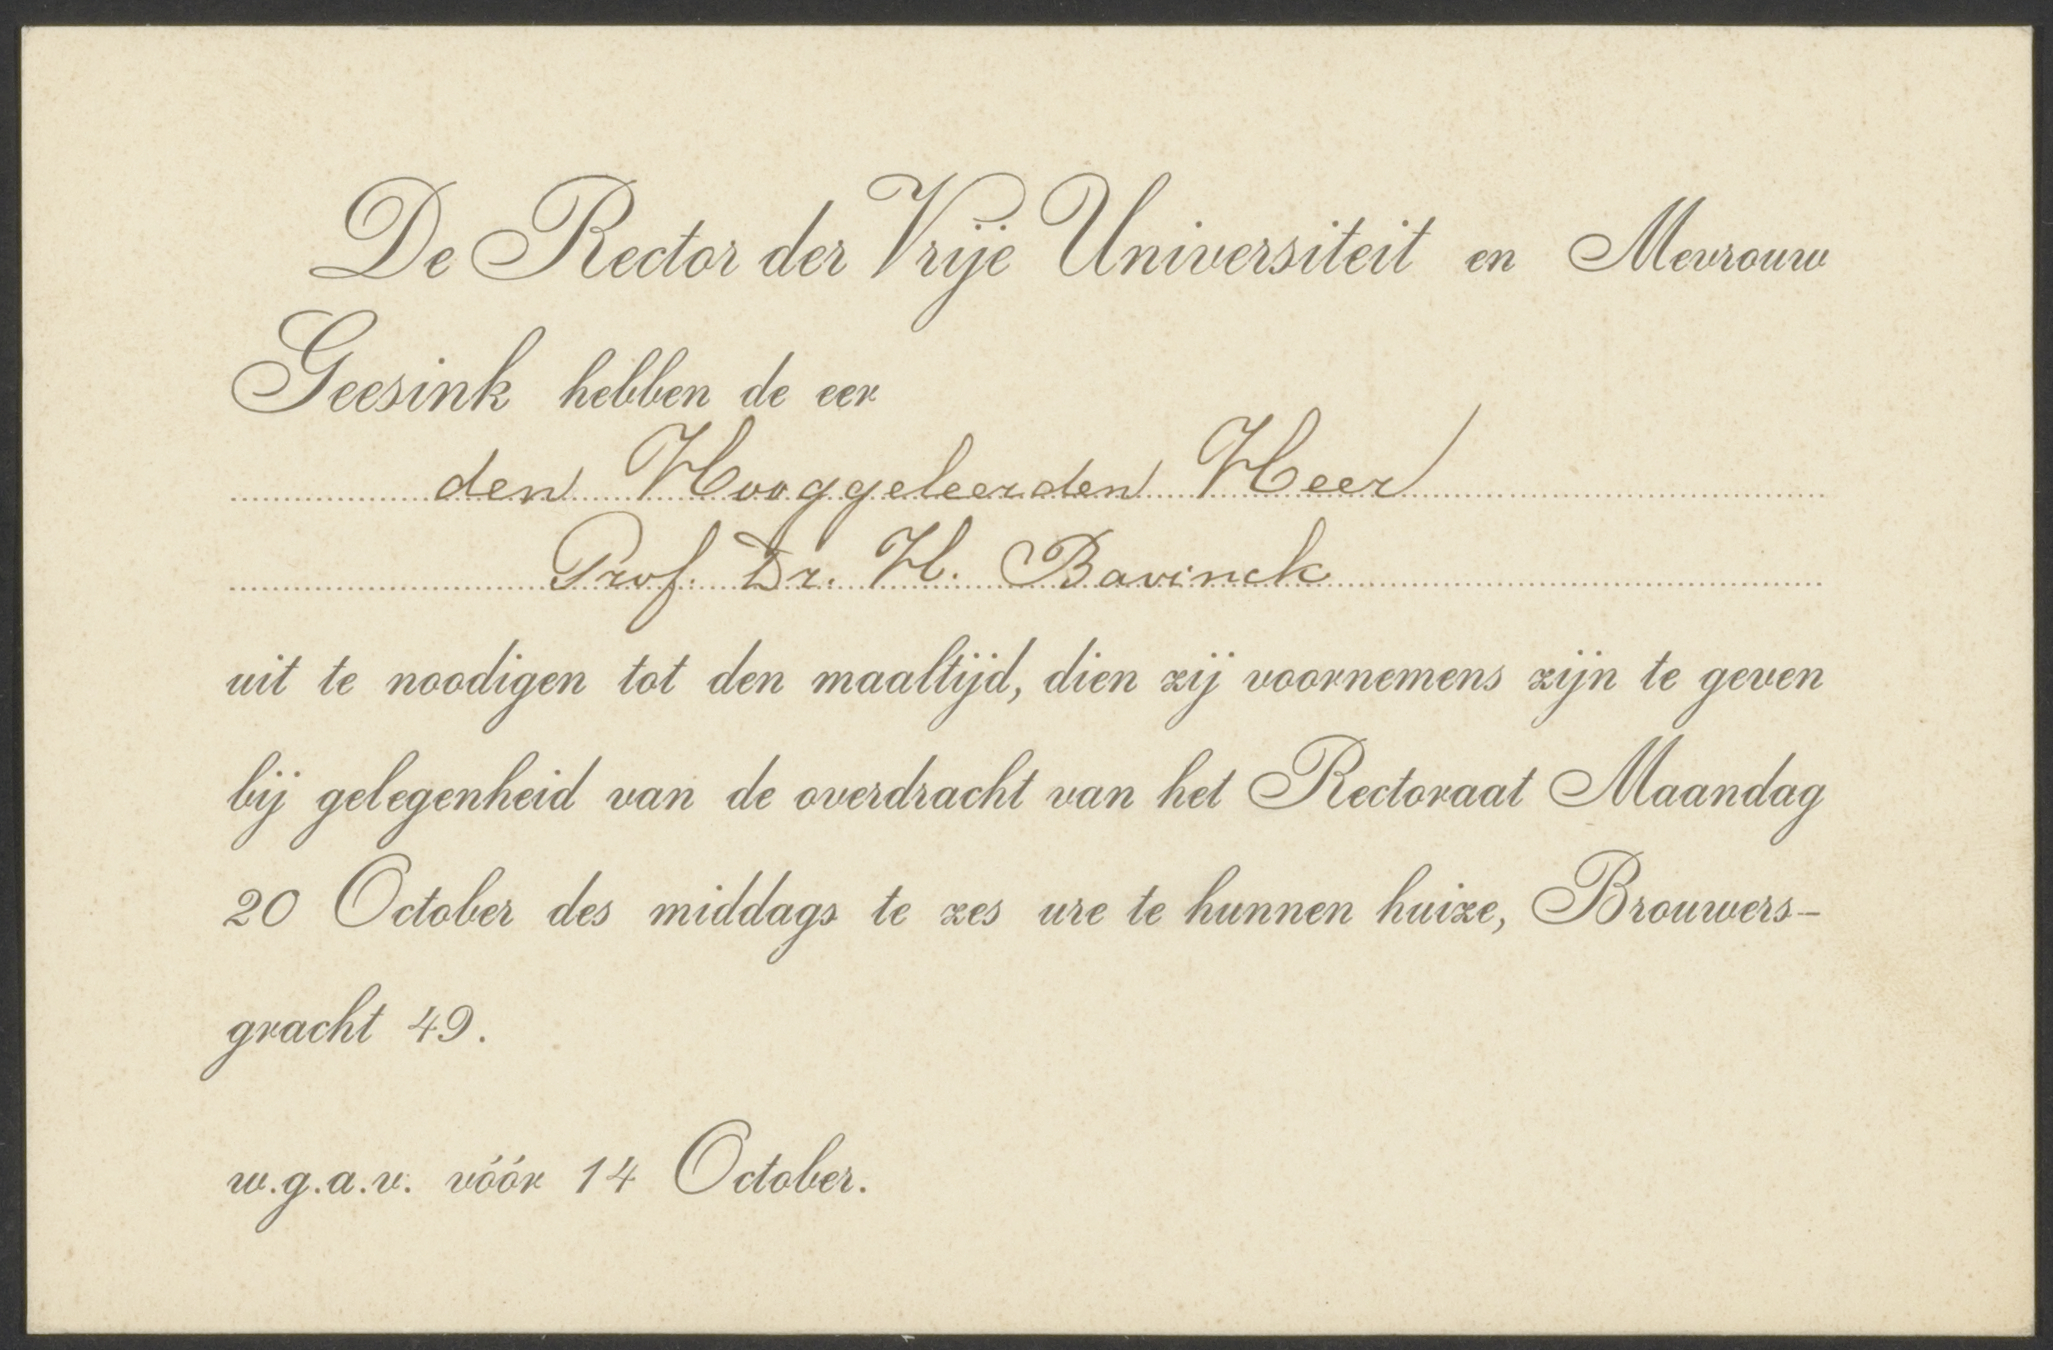 De Rector der Vrije Universiteit en Mevrouw
Geesink hebben de eer
den Hooggeleerden Heer
Prof. Dr. H. Bavinck
uit te noodigen tot den maaltijd, dien zij voornemens zijn te geven
bij gelegenheid van de overdracht van het Rectoraat Maandag
20 October des middags te zes ure te hunnen huize, Brouwers-
gracht 49.
w.g.a.v. vóór 14 October.